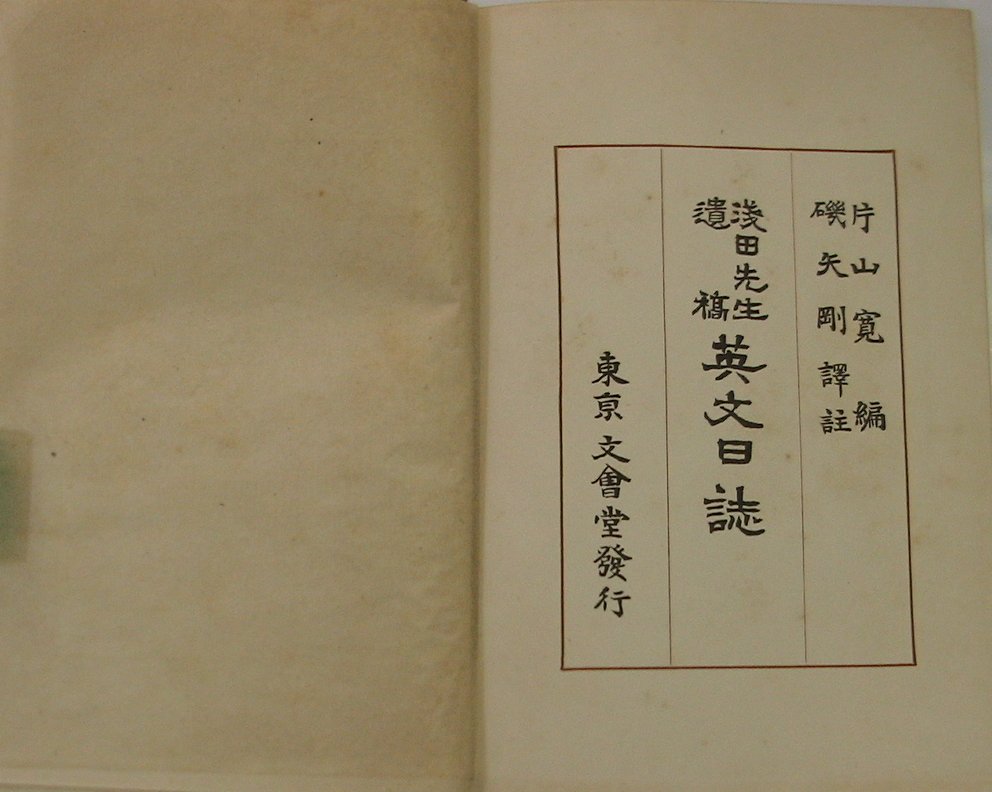 片山寛編
磯矢剛譯註
淺田先生
遺稿
英文日誌
東京文會堂發行